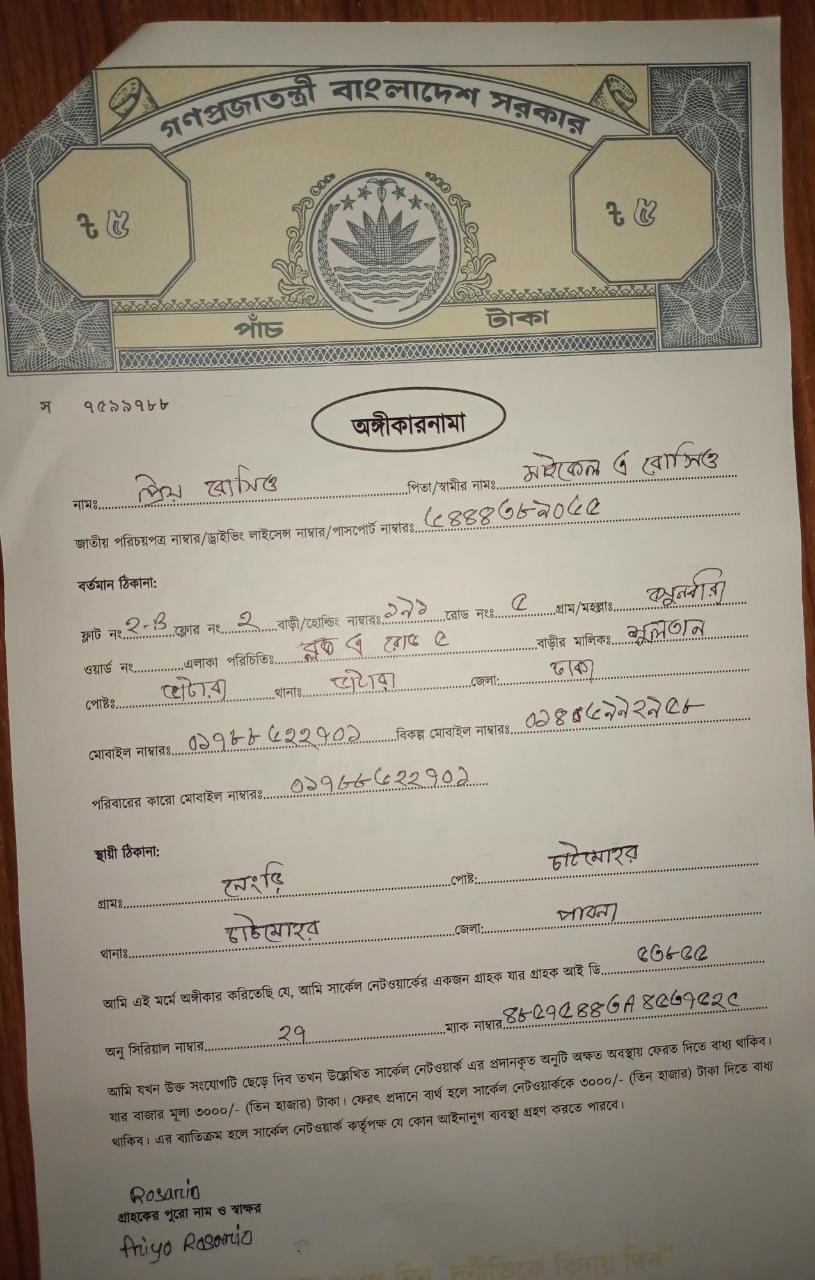 গণপ্রজাতন্ত্রী বাংলাদেশ সরকার
৳ ৫ ৳ ৫
পাঁচ টাকা
স ৭৫৯৯৭৮৮
অঙ্গীকারনামা
নামঃ প্রিয় রোসিও পিতা/স্বামীর নামঃ মাইকেল এ রোসিও
জাতীয় পরিচয়পত্র নাম্বার/ড্রাইভিং লাইসেন্স নাম্বার/পাসপোর্ট নাম্বারঃ
বর্তমান ঠিকানা:
ফ্লাট নং ২-B ফ্লোর নং ২ বাড়ী/হোল্ডিং নাম্বারঃ রোড নংঃ ৫ গ্রাম/মহল্লাঃ
ওয়ার্ড নং এলাকা পরিচিতিঃ ব্লক এ রোড ৫ বাড়ীর মালিকঃ সুলতান
পোষ্টঃ ভাটারা থানাঃ ভাটারা জেলা: ঢাকা
মোবাইল নাম্বারঃ ০১৭৮৮৬২২৭০১ বিকল্প মোবাইল নাম্বারঃ
পরিবারের কারো মোবাইল নাম্বারঃ ০১৭৮৮৬২২৭০১
স্থায়ী ঠিকানা:
গ্রামঃ পোষ্ট: চাটমোহর
থানাঃ চাটমোহর জেলা: পাবনা
আমি এই মর্মে অঙ্গীকার করিতেছি যে, আমি সার্কেল নেটওয়ার্কের একজন গ্রাহক যার গ্রাহক আই ডি ৫৩৮৫৫
অনু সিরিয়াল নাম্বার ২৭ ম্যাক নাম্বার
আমি যখন উক্ত সংযোগটি ছেড়ে দিব তখন উল্লেখিত সার্কেল নেটওয়ার্ক এর প্রদানকৃত অনুটি অক্ষত অবস্থায় ফেরত দিতে বাধ্য থাকিব।
যার বাজার মূল্য ৩০০০/- (তিন হাজার) টাকা। ফেরৎ প্রদানে ব্যর্থ হলে সার্কেল নেটওয়ার্ককে ৩০০০/- (তিন হাজার) টাকা দিতে বাধ্য
থাকিব। এর ব্যতিক্রম হলে সার্কেল নেটওয়ার্ক কর্তৃপক্ষ যে কোন আইনানুগ ব্যবস্থা গ্রহণ করতে পারবে।
Rosario
গ্রাহকের পুরো নাম ও স্বাক্ষর
Priyo Rosario
দুর্নীতিকে বিদায় দিন"